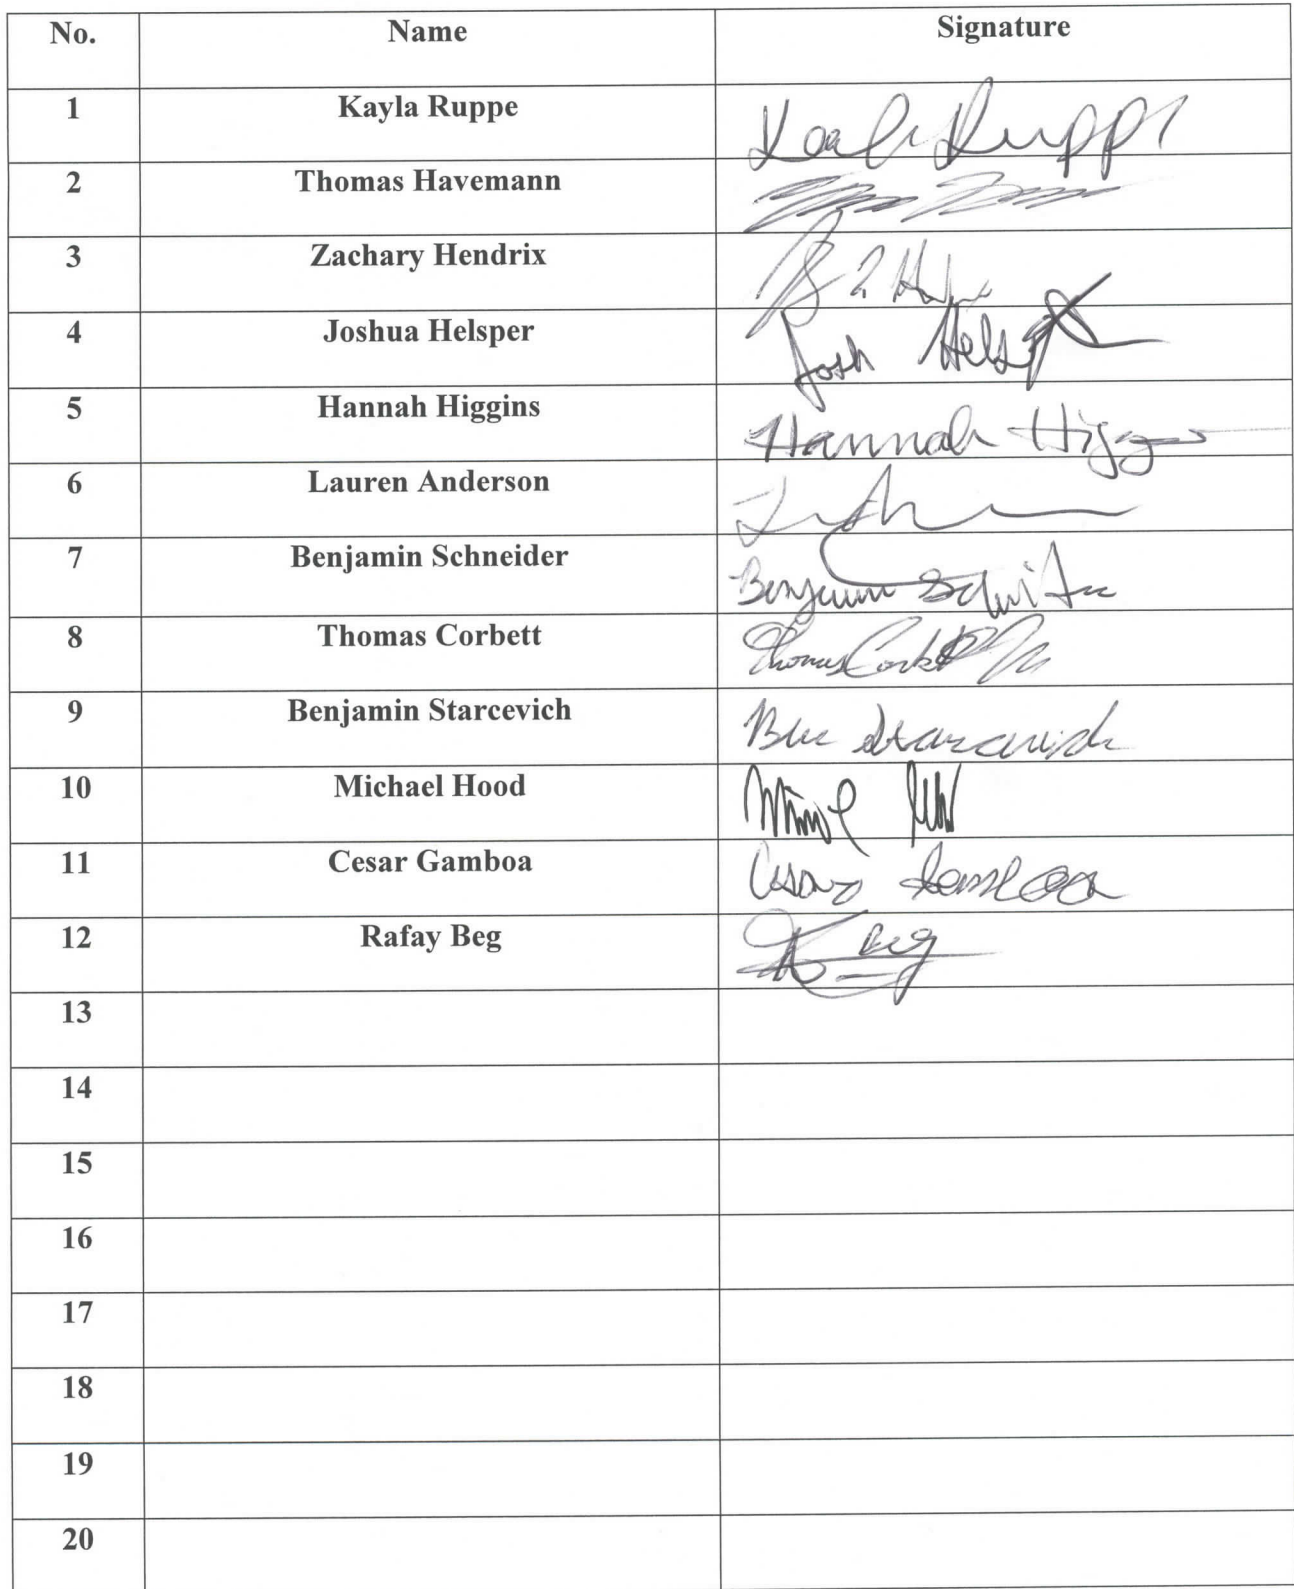 No. Name Signature
1 Kayla Ruppe Kayla Ruppe
2 Thomas Havemann
3 Zachary Hendrix
4 Joshua Helsper Josh Helsper
5 Hannah Higgins Hannah Higgins
6 Lauren Anderson
7 Benjamin Schneider Benjamin Schneider
8 Thomas Corbett Thomas Corbett
9 Benjamin Starcevich Ben Starcevich
10 Michael Hood
11 Cesar Gamboa Cesar Gamboa
12 Rafay Beg Beg
13
14
15
16
17
18
19
20